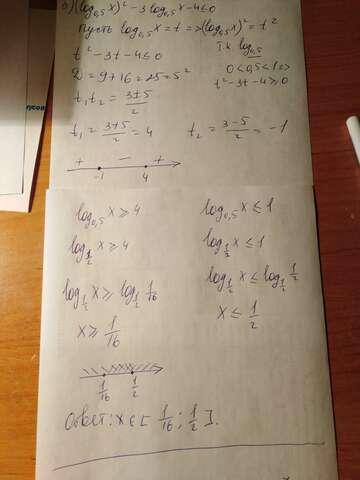 б) (log₀,₅x)² - 3log₀,₅x - 4 ≤ 0
Пусть log₀,₅x = t => (log₀,₅x)² = t²
t² - 3t - 4 ≤ 0
Т.к log₀,₅
0 < 0,5 < 1 =>
t² - 3t - 4 ≥ 0
D = 9 + 16 = 25 = 5²
t₁t₂ = (3±5)/2
t₁ = (3+5)/2 = 4
t₂ = (3-5)/2 = -1
+ - +
-1 4
log₀,₅x ≥ 4
log₁/₂x ≥ 4
log₁/₂x ≥ log₁/₂ 1/16
x ≥ 1/16
log₀,₅x ≤ 1
log₁/₂x ≤ 1
log₁/₂x ≤ log₁/₂ 1/2
x ≤ 1/2
1/16 1/2
Ответ: x ∈ [1/16; 1/2].